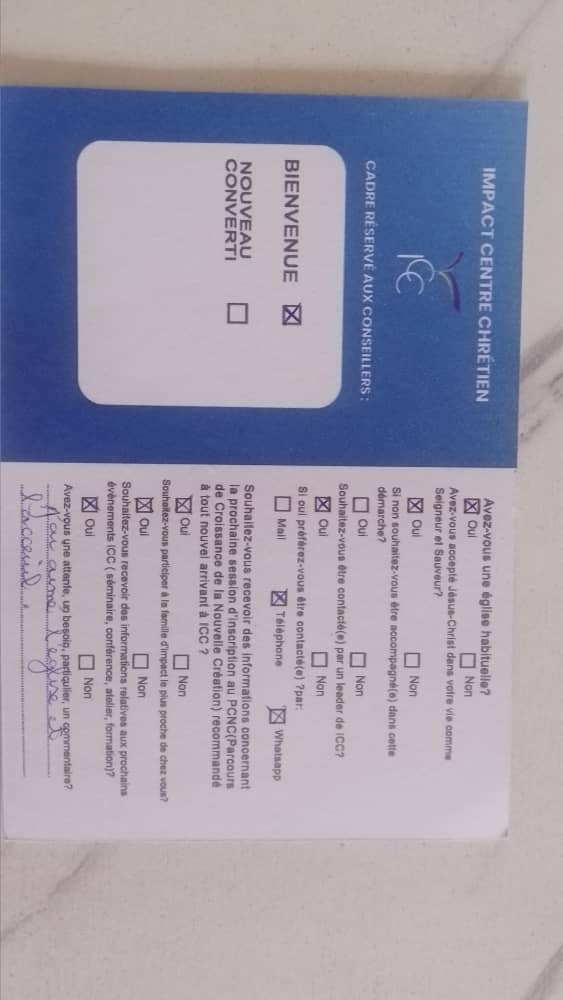 IMPACT CENTRE CHRÉTIEN
ICC
CADRE RÉSERVÉ AUX CONSEILLERS :
BIENVENUE ☒
NOUVEAU
CONVERTI ☐
Avez-vous une église habituelle?
☒ Oui ☐ Non
Avez-vous accepté Jésus-Christ dans votre vie comme
Seigneur et Sauveur?
☒ Oui ☐ Non
Si non souhaitez-vous être accompagné(e) dans cette
démarche?
☐ Oui ☐ Non
Souhaitez-vous être contacté(e) par un leader de ICC?
☒ Oui ☐ Non
Si oui préférez-vous être contacté(e) ?par:
☐ Mail ☒ Téléphone ☒ Whatsapp
Souhaitez-vous recevoir des informations concernant
la prochaine session d'inscription au PCNC(Parcours
de Croissance de la Nouvelle Création) recommandé
à tout nouvel arrivant à ICC ?
☒ Oui ☐ Non
Souhaitez-vous participer à la famille d'impact le plus proche de chez vous?
☒ Oui ☐ Non
Souhaitez-vous recevoir des informations relatives aux prochains
évènements ICC ( séminaire, conférence, atelier, formation)?
☒ Oui ☐ Non
Avez-vous une attente, un besoin, particulier, un commentaire?
j'ai aimé l'église et
l'acceuil.